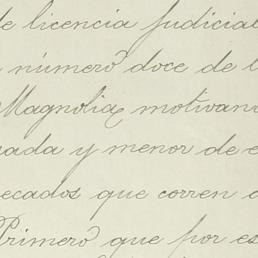 de licencia judicial
número doce de l
Magnolia, motivan
ada y menor de e
ecados que corren
Primero que por es